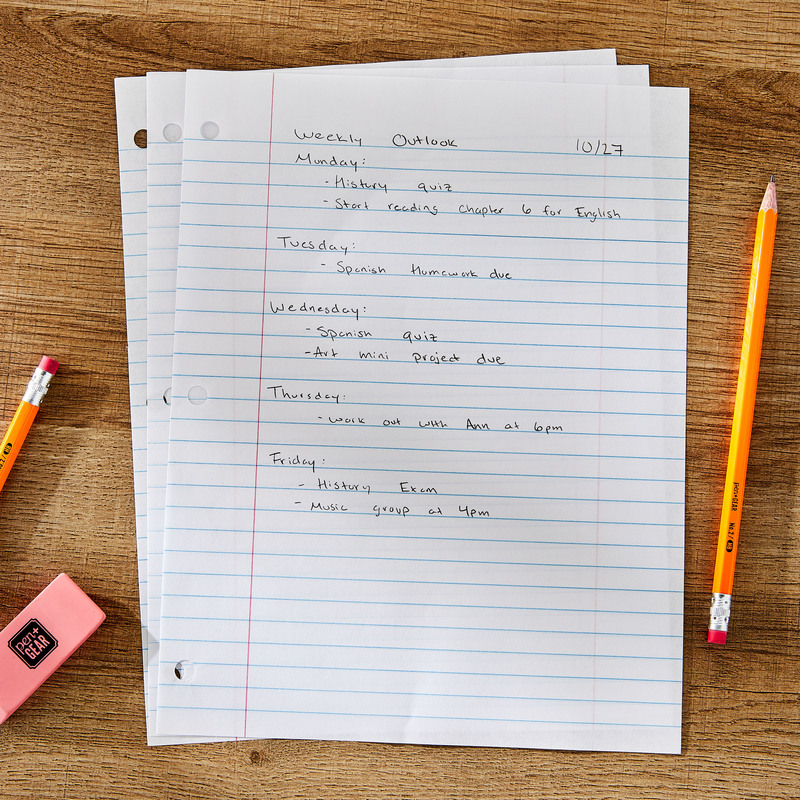 Weekly Outlook 10/27
Monday:
- History quiz
- Start reading chapter 6 for English
Tuesday:
- Spanish Homework due
Wednesday:
- Spanish quiz
- Art mini project due
Thursday:
- work out with Ann at 6pm
Friday:
- History Exam
- Music group at 4pm
pen+
GEAR
pen+GEAR No. 2 / HB